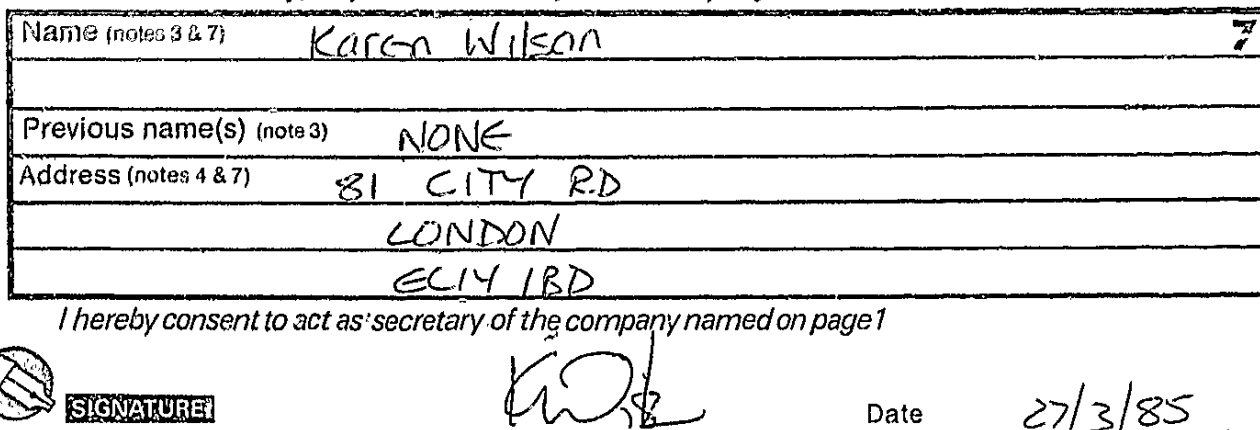 Name (notes 3 & 7) Karen Wilson 7
Previous name(s) (note 3) NONE
Address (notes 4 & 7) 81 CITY RD
LONDON
EC1Y 1BD
I hereby consent to act as secretary of the company named on page 1
SIGNATURE Date 27/3/85